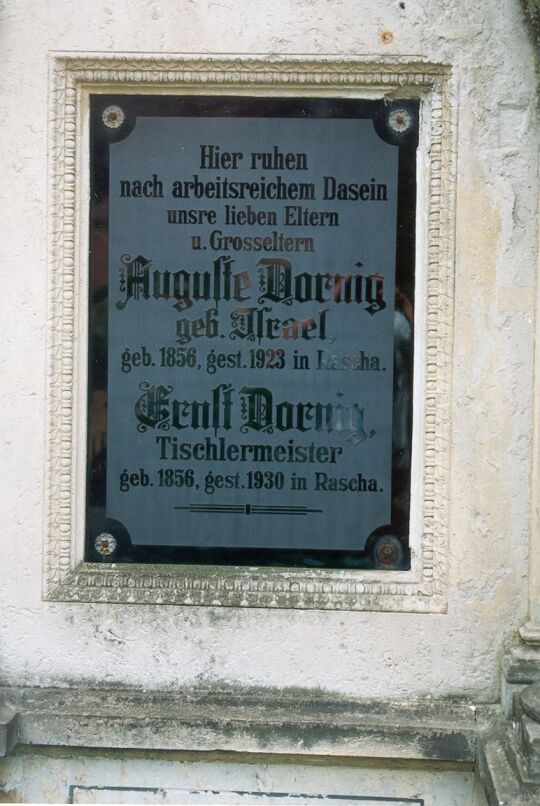 Hier ruhen
nach arbeitsreichem Dasein
unsre lieben Eltern
u. Grosseltern
Auguste Dornig
geb. Israel,
geb. 1856, gest. 1923 in Rascha.
Ernst Dornig,
Tischlermeister
geb. 1856, gest. 1930 in Rascha.